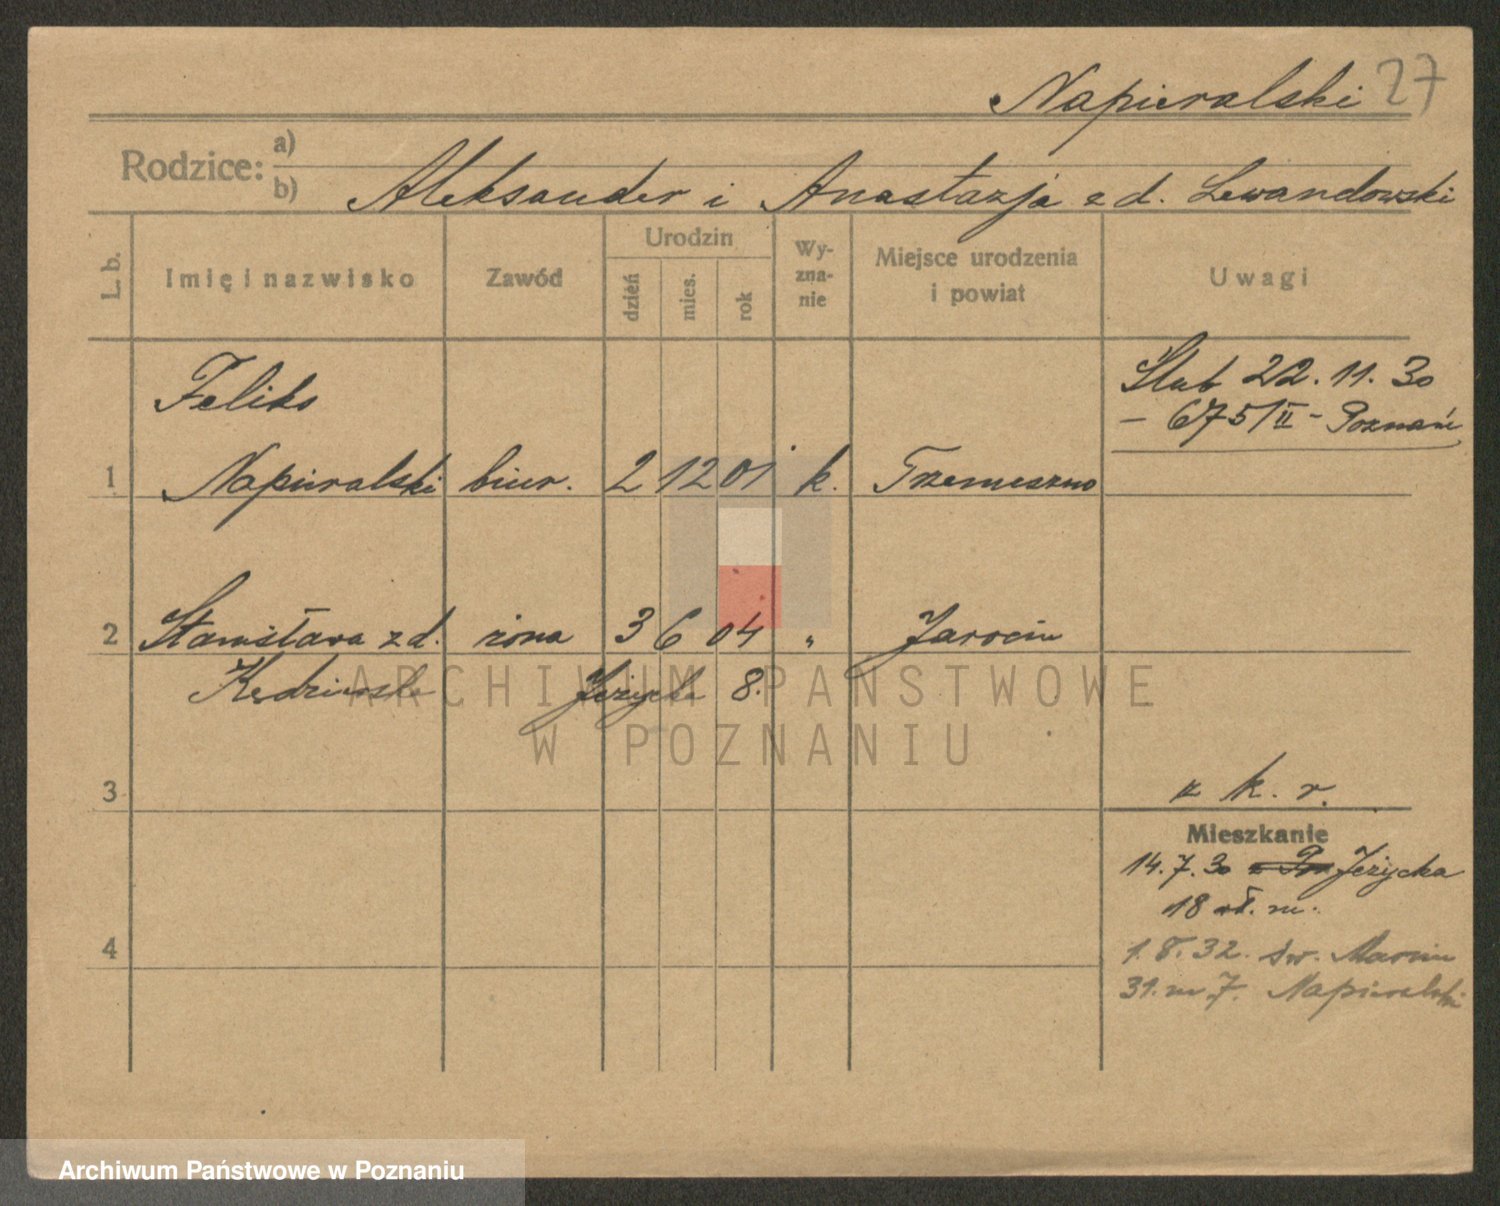 Napieralski 27
Rodzice: a)
b) Aleksander i Anastazja z d. Lewandowski
L. b. Imię i nazwisko Zawód Urodzin dzień mies. rok Wyznanie Miejsce urodzenia i powiat Uwagi
Ślub 22.11.30
Feliks
– 675/II – Poznań
1 Napieralski biur. 2 12 01 k. Trzemeszno
2 Stanisława z d. żona 3 6 04 „ Jarocin
Kędzierska Jeżycka 8.
ARCHIWUM PAŃSTWOWE
W POZNANIU
3 z k. r.
Mieszkanie
14.7.30 Jeżycka
18 m.
4 1.8.32. św. Marcin
31. m 7. Napieralski
Archiwum Państwowe w Poznaniu